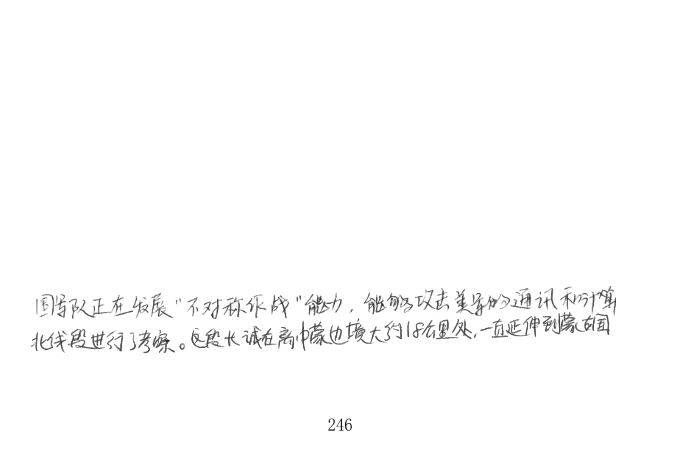 国军队正在发展“不对称作战”能力，能够攻击美军的通讯和计算
北线段进行了考察。这段长城在离中蒙边境大约18公里处，一直延伸到蒙古国
246